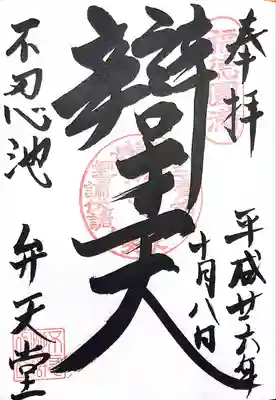 奉拝
平成廿六年
十月八日
辯天
不忍池
弁天堂